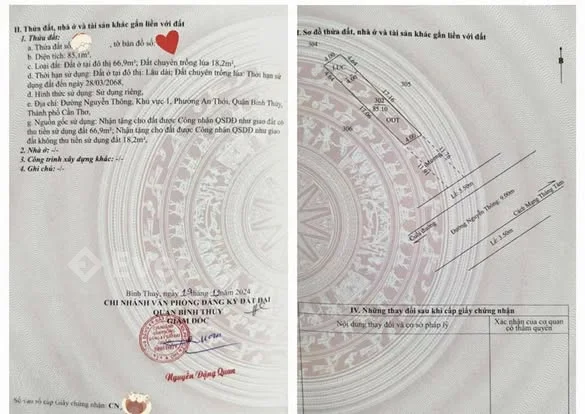 II. Thửa đất, nhà ở và tài sản khác gắn liền với đất
1. Thửa đất:
a. Thửa đất số: , tờ bản đồ số:
b. Diện tích: 85,1m²,
c. Loại đất: Đất ở tại đô thị 66,9m²; Đất chuyên trồng lúa 18,2m²,
d. Thời hạn sử dụng: Đất ở tại đô thị: Lâu dài; Đất chuyên trồng lúa: Thời hạn sử
dụng đất đến ngày 28/03/2068,
đ. Hình thức sử dụng: Sử dụng riêng,
e. Địa chỉ: Đường Nguyễn Thông, Khu vực 1, Phường An Thới, Quận Bình Thủy,
Thành phố Cần Thơ,
g. Nguồn gốc sử dụng: Nhận tặng cho đất được Công nhận QSDĐ như giao đất có
thu tiền sử dụng đất 66,9m²; Nhận tặng cho đất được Công nhận QSDĐ như giao
đất không thu tiền sử dụng đất 18,2m².
2. Nhà ở: -/-
3. Công trình xây dựng khác: -/-
4. Ghi chú: -/-
Bình Thủy, ngày 19 tháng 2024
CHI NHÁNH VĂN PHÒNG ĐĂNG KÝ ĐẤT ĐAI
QUẬN BÌNH THỦY
GIÁM ĐỐC
Nguyễn Đặng Quan
Số vào sổ cấp Giấy chứng nhận: CN
II. Sơ đồ thửa đất, nhà ở và tài sản khác gắn liền với đất
304
4.00
4.64
LUC
4.64
305
12.16
302
85.10
17.06
ODT
306
4.00
11.76
Mương
Lề 5.50m
Cuối đường
Đường Nguyễn Thông: 9.00m
Cách Mạng Tháng Tám
Lề 3.50m
IV. Những thay đổi sau khi cấp giấy chứng nhận
Nội dung thay đổi và cơ sở pháp lý
Xác nhận của cơ quan
có thẩm quyền